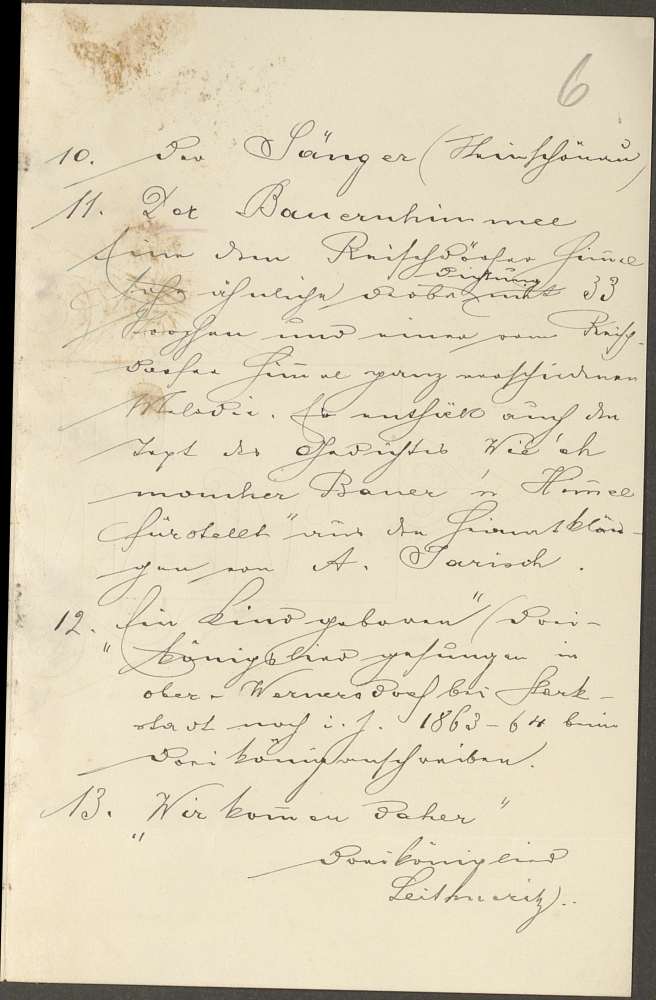 6
10. Der Sänger (Steinschönau)
11. Der Bauernhimmel
Eine dem Reischdörfer Him̄el
sehr ähnliche Dichtung mit 33
Strophen und einer vom Reisch-
dorfer Him̄el ganz verschiedenen
Melodie. Er enthält auch den
Text des Gedichtes Wie 'ch
moncher Bauer 'n Him̄el
fürstellt" aus den Heimatklän-
gen von A. Tarisch.
12. „Ein Kind geboren" (Drei-
königslied gesungen in
ober-Wernersdorf bei Stark-
stadt noch i. J. 1863-64 beim
Dreiköniganschreiben.
13. „Wir kom̄en daher"
Dreiköniglied
Leitmeritz)..